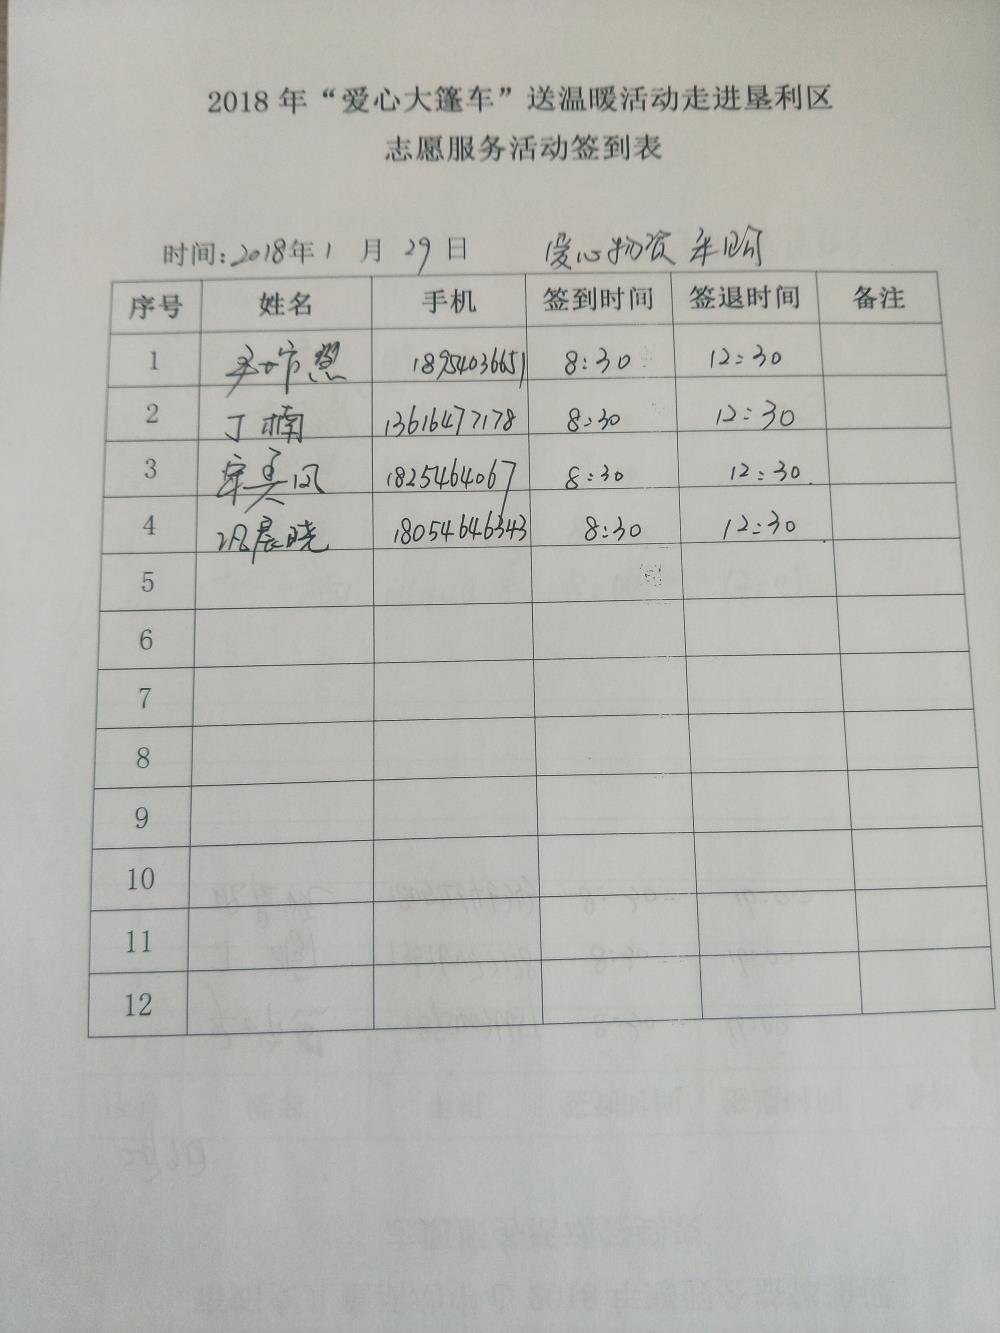 2018 年“爱心大篷车”送温暖活动走进垦利区
志愿服务活动签到表
时间:2018年1 月 29 日 爱心物资 采购
序号 姓名 手机 签到时间 签退时间 备注
1 18954036651 8:30 12:30
2 丁楠 13616477178 8:30 12:30
3 1825464067 8:30 12:30
4 晨晓 18054646343 8:30 12:30
5
6
7
8
9
10
11
12